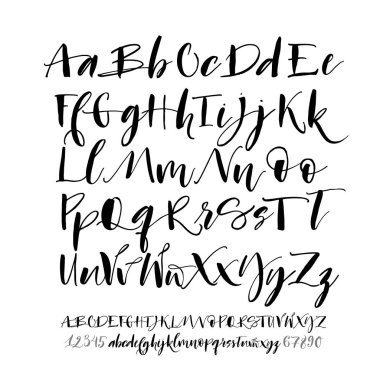 Aa Bb Cc Dd Ee
Ff Gg Hh Ii Jj Kk
Ll Mm Nn Oo
Pp Qq Rr Ss Tt
Uu Vv Ww Xx Yy Zz
ABCDEFGHIJKLMNOPQRSTUVWXYZ
12345 abcdefghyklmnopqrstuvwxyz 67890